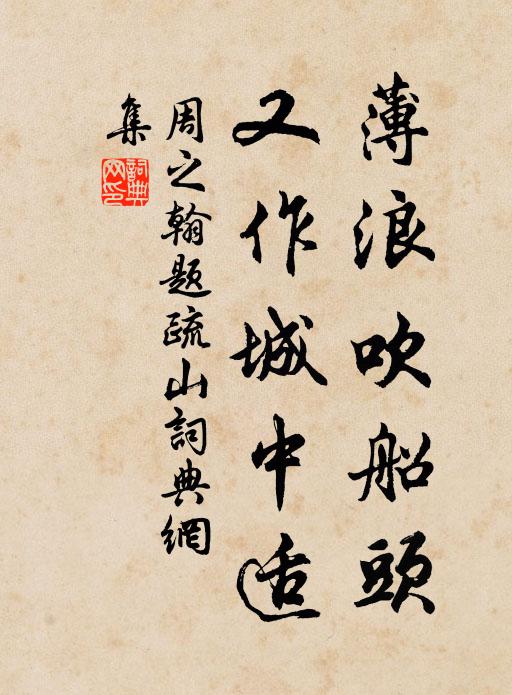 薄浪吹船頭
又作城中适
周之翰題疏山詞典網
集
詞典網印